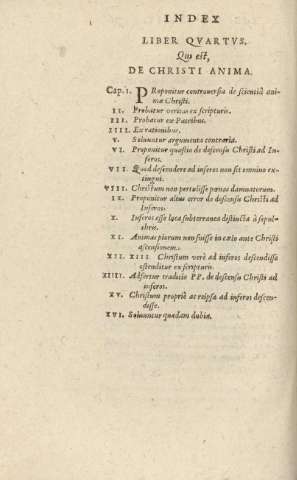 INDEX
LIBER QVARTVS,
Qui est,
DE CHRISTI ANIMA.
Cap. I. PRoponitur controversia de scientia ani-
mæ Christi.
II. Probatur veritas ex scripturis.
III. Probatur ex Patribus.
IIII. Ex rationibus.
V. Soluuntur argumenta contraria.
VI. Proponitur quæstio de descensu Christi ad In-
feros.
VII. Quod descendere ad inferos non sit omnino ex-
tingui.
VIII. Christum non pertulisse pœnas damnatorum.
IX. Proponitur alius error de descensu Christi ad
Inferos.
X. Inferos esse loca subterranea distincta à sepul-
chris.
XI. Animas piorum non fuisse in cælo ante Christi
ascensionem.
XII. XIII. Christum verè ad inferos descendisse
ostenditur ex scripturis.
XIIII. Adfertur traditio PP. de descensu Christi ad
inferos.
XV. Christum propriè ac reipsa ad inferos descen-
disse.
XVI. Soluuntur quædam dubia.